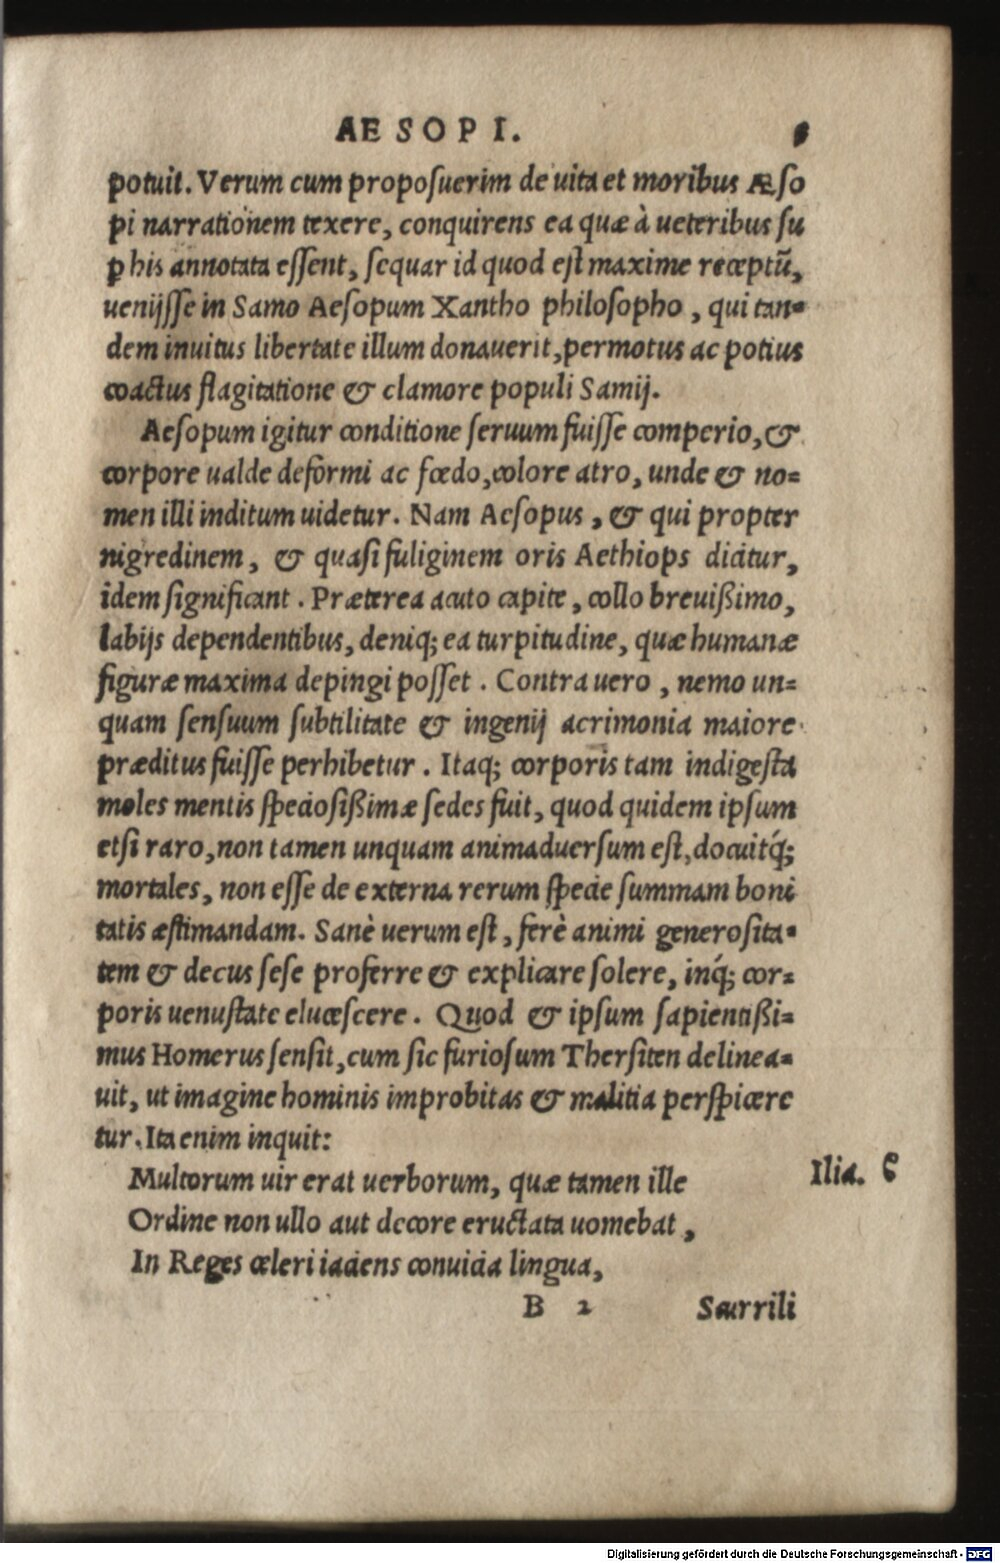 AESOPI.
potuit. Verum cum proposuerim de uita et moribus Æso
pi narrationem texere, conquirens ea quæ à ueteribus su
ꝑ his annotata essent, sequar id quod est maxime receptū,
uenijsse in Samo Aesopum Xantho philosopho, qui tan-
dem inuitus libertate illum donauerit, permotus ac potius
coactus flagitatione & clamore populi Samij.
Aesopum igitur conditione seruum fuisse comperio, &
corpore ualde deformi ac fœdo, colore atro, unde & no-
men illi inditum uidetur. Nam Aesopus, & qui propter
nigredinem, & quasi fuliginem oris Aethiops dicitur,
idem significant. Præterea acuto capite, collo breuißimo,
labijs dependentibus, deniq; ea turpitudine, quæ humanæ
figuræ maxima depingi posset. Contra uero, nemo un-
quam sensuum subtilitate & ingenij acrimonia maiore
præditus fuisse perhibetur. Itaq; corporis tam indigesta
moles mentis speciosißimæ sedes fuit, quod quidem ipsum
etsi raro, non tamen unquam animaduersum est, docuitq́;
mortales, non esse de externa rerum specie summam boni
tatis æstimandam. Sanè uerum est, ferè animi generosita-
tem & decus sese proferre & explicare solere, inq́; cor-
poris uenustate elucescere. Quod & ipsum sapientißi-
mus Homerus sensit, cum sic furiosum Thersiten delinea-
uit, ut imagine hominis improbitas & malitia perspicere
tur. Ita enim inquit:
Multorum uir erat uerborum, quæ tamen ille
Ordine non ullo aut decore eructata uomebat,
In Reges celeri iaciens conuicia lingua,
Ilia. ϛ
B 2 Scurrili
Digitalisierung gefördert durch die Deutsche Forschungsgemeinschaft - DFG